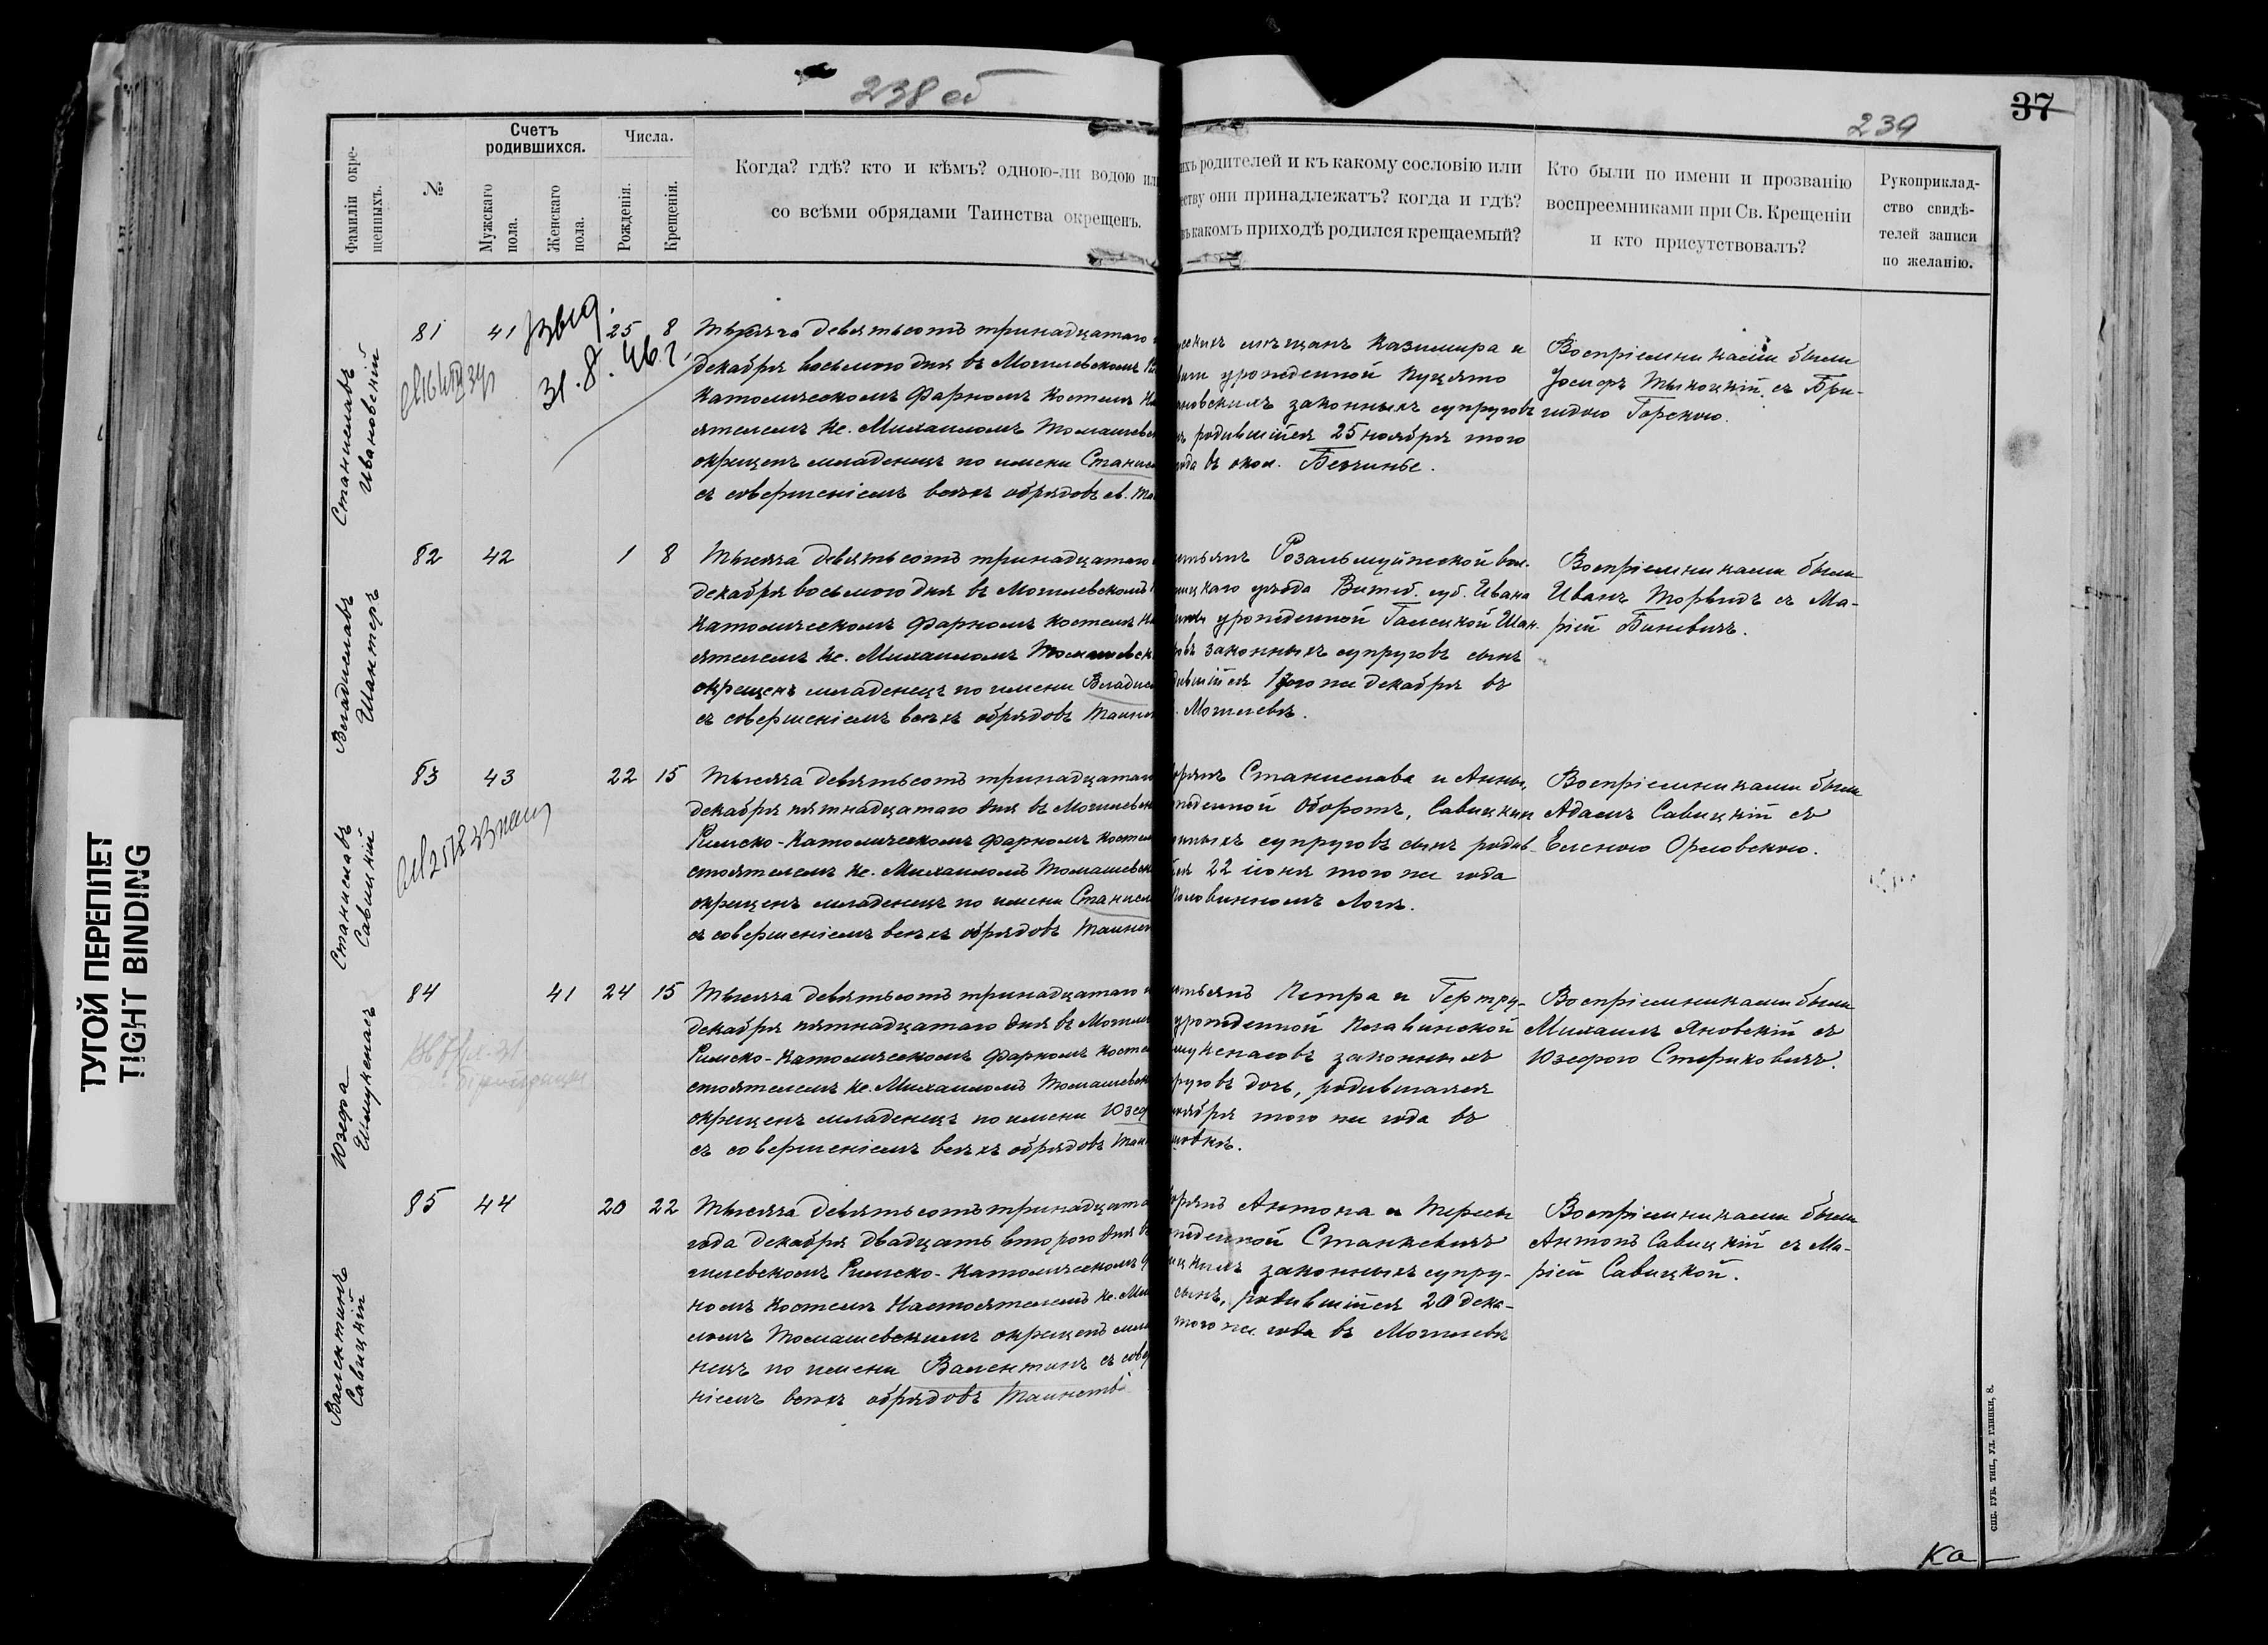 238 об
37
239
ТУГОЙ ПЕРЕПЛЕТ
TIGHT BINDING
Фамиліи окре-
щенныхъ.
№
Счетъ
родившихся.
Мужскаго
пола.
Женскаго
пола.
Числа.
Рожденія.
Крещенія.
Когда? гдѣ? кто и кѣмъ? одною-ли водою ил
со всѣми обрядами Таинства окрещенъ.
ихъ родителей и къ какому сословію или
еству они принадлежатъ? когда и гдѣ?
въ какомъ приходѣ родился крещаемый?
Кто были по имени и прозванію
воспреемниками при Св. Крещеніи
и кто присутствовалъ?
Рукоприклад-
ство свидѣ-
телей записи
по желанію.
Станиславъ
Ивановскій
81 41 25 8
31.8.46 г.
Тысяча девятьсотъ тринадцатаго
декабря восьмого дня въ Могилевскомъ
Католическомъ Фарномъ Костелѣ На
ятелемъ Кс. Михаиломъ Томашевск
окрещенъ младенецъ по имени Станисл
съ совершеніемъ всѣхъ обрядовъ св. Та
мѣщанъ Казимира и
урожденной Пуцято
ановскихъ законныхъ супруговъ
родившійся 25 ноября того
года въ окол.
Воспріемниками были
Іосифъ Тыкоцкій съ Бри-
гидою Горскою.
Владиславъ
Шантеръ
82 42 1 8
Тысяча девятьсотъ тринадцатаго
декабря восьмого дня въ Могилевскомъ
Католическомъ Фарномъ Костелѣ На
ятелемъ Кс. Михаиломъ Томашевск
окрещенъ младенецъ по имени Владисл
съ совершеніемъ всѣхъ обрядовъ Таинс
стьянъ Розальмуйжской вол.
ицкаго уѣзда Витеб. губ. Ивана
урожденной Галецкой Шан-
овъ законныхъ супруговъ сынъ
дившійся 1го декабря въ
Могилевѣ.
Воспріемниками были
Иванъ съ Ма-
ріей Биневичъ.
Станиславъ
Савицкій
83 43 22 15
Тысяча девятьсотъ тринадцатаго
декабря пятнадцатаго дня въ Могилевск
Римско-Католическомъ Фарномъ Косте
стоятелемъ Кс. Михаиломъ Томашевск
окрещенъ младенецъ по имени Станисл
съ совершеніемъ всѣхъ обрядовъ Таинст
орянъ Станислава и Анны,
ожденной Оборотъ, Савицких
онныхъ супруговъ сынъ родив-
йся 22 іюня того же года
Половинномъ Логѣ.
Воспріемниками были
Адамъ Савицкій съ
Еленою Орловскою.
Юзефа
Шмукснасъ
84 41 24 15
Тысяча девятьсотъ тринадцатаго
декабря пятнадцатаго дня въ Могил
Римско-Католическомъ Фарномъ Косте
стоятелемъ Кс. Михаиломъ Томашевск
окрещенъ младенецъ по имени Юзеф
съ совершеніемъ всѣхъ обрядовъ Таин
стьянъ Петра и Гертру-
урожденной
законныхъ
пруговъ дочь, родившаяся
ноября того же года въ
Воспріемниками были
Михаилъ Яновскій съ
Юзефою Стефановичъ.
Валентинъ
Савицкій
85 44 20 22
Тысяча девятьсотъ тринадцата
года декабря двадцать второго дня въ
гилевскомъ Римско-Католическомъ Ф
номъ Костелѣ Настоятелемъ Кс. Ми
ломъ Томашевскимъ окрещенъ мла
нецъ по имени Валентинъ съ сове
ніемъ всѣхъ обрядовъ Таинства
орянъ Антона и Терезы
ожденной Станкевичъ
ицкихъ законныхъ супру-
сынъ, родившійся 20 дека-
того же года въ Могилевѣ
Воспріемниками были
Антонъ Савицкій съ Ма-
ріей Савицкой.
СПБ. ГУБ. ТИП., УЛ. ГЛИНКИ, 8.
Ка